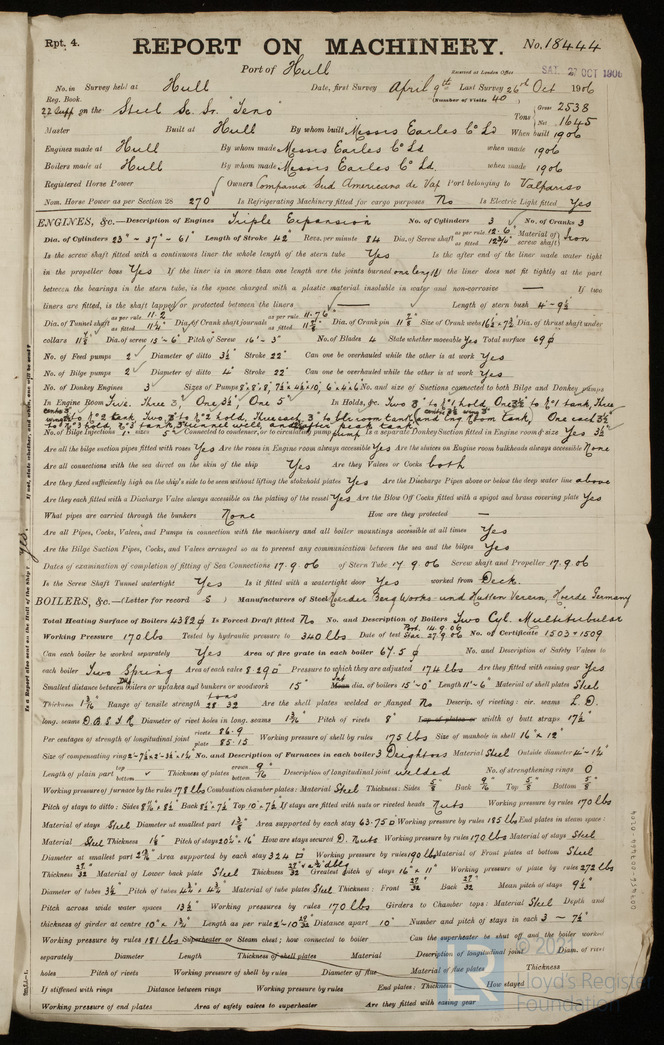 Rpt. 4.
REPORT ON MACHINERY.
No. 18444
Port of Hull
Received at London Office
SAT. 27 OCT 1906
No. in Survey held at Hull Date, first Survey April 9th Last Survey 26th Oct 1906
Reg. Book.
(Number of Visits 40)
on the Steel Sc. Sr. "Teno" Tons Gross 2538
Net 1645
Master Built at Hull By whom built Messrs Earles Co Ld When built 1906
Engines made at Hull By whom made Messrs Earles Co Ld when made 1906
Boilers made at Hull By whom made Messrs Earles Co Ld. when made 1906
Registered Horse Power Owners Compania Sud Americana de Vap Port belonging to Valpariso
Nom. Horse Power as per Section 28 270 Is Refrigerating Machinery fitted for cargo purposes No Is Electric Light fitted Yes
ENGINES, &c.—Description of Engines Triple Expansion No. of Cylinders 3 No. of Cranks 3
Dia. of Cylinders 23" - 37" - 61" Length of Stroke 42" Revs. per minute 84 Dia. of Screw shaft as per rule 12.6" as fitted 12 3/4" Material of screw shaft Iron
Is the screw shaft fitted with a continuous liner the whole length of the stern tube Yes Is the after end of the liner made water tight
in the propeller boss Yes If the liner is in more than one length are the joints burned one length If the liner does not fit tightly at the part
between the bearings in the stern tube, is the space charged with a plastic material insoluble in water and non-corrosive — If two
liners are fitted, is the shaft lapped or protected between the liners — Length of stern bush 4'-9½"
Dia. of Tunnel shaft as per rule 11.2 as fitted 11¼" Dia. of Crank shaft journals as per rule 11.76 as fitted Dia. of Crank pin Size of Crank webs Dia. of thrust shaft under
collars Dia. of screw 13'-6" Pitch of Screw 16'-3" No. of Blades 4 State whether moveable Yes Total surface 69 ϕ
No. of Feed pumps 2 Diameter of ditto 3½" Stroke 22" Can one be overhauled while the other is at work Yes
No. of Bilge pumps 2 Diameter of ditto 4" Stroke 22" Can one be overhauled while the other is at work Yes
No. of Donkey Engines 3 Sizes of Pumps No. and size of Suctions connected to both Bilge and Donkey pumps
In Engine Room Five. Three 3", One 3½", One 5" In Holds, &c. Two 3" to No 1 hold, One 3½" to No 1 tank, Three
to No 2 tank, Two 3" to No 2 hold, Three each 3" to blr room tank, and Eng Room tank, One each 3½"
to No 3 hold, No 3 tank, tunnel well, and after peak tank.
No. of Bilge Injections 1 sizes 5" Connected to condenser, or to circulating pump pump Is a separate Donkey Suction fitted in Engine room & size Yes 3½"
Are all the bilge suction pipes fitted with roses Yes Are the roses in Engine room always accessible Yes Are the sluices on Engine room bulkheads always accessible None
Are all connections with the sea direct on the skin of the ship Yes Are they Valves or Cocks both
Are they fixed sufficiently high on the ship's side to be seen without lifting the stokehold plates Yes Are the Discharge Pipes above or below the deep water line above
Are they each fitted with a Discharge Valve always accessible on the plating of the vessel Yes Are the Blow Off Cocks fitted with a spigot and brass covering plate Yes
What pipes are carried through the bunkers None How are they protected —
Are all Pipes, Cocks, Valves, and Pumps in connection with the machinery and all boiler mountings accessible at all times Yes
Are the Bilge Suction Pipes, Cocks, and Valves arranged so as to prevent any communication between the sea and the bilges Yes
Dates of examination of completion of fitting of Sea Connections 17.9.06 of Stern Tube 17.9.06 Screw shaft and Propeller 17.9.06
Is the Screw Shaft Tunnel watertight Yes Is it fitted with a watertight door Yes worked from Deck.
BOILERS, &c.—(Letter for record S) Manufacturers of Steel Hoerder Berg Works und Hutten Verein, Hoerde Germany
Total Heating Surface of Boilers 4382 ϕ Is Forced Draft fitted No No. and Description of Boilers Two Cyl. Multitubular
Working Pressure 170 lbs Tested by hydraulic pressure to 340 lbs. Date of test Port. 14.9.06 Star. 27.9.06 No. of Certificate 1503 + 1509
Can each boiler be worked separately Yes Area of fire grate in each boiler 67.5 ϕ No. and Description of Safety Valves to
each boiler Two Spring Area of each valve 8.29 □ Pressure to which they are adjusted 174 lbs Are they fitted with easing gear Yes
Smallest distance between boilers or uptakes and bunkers or woodwork 15" dia. of boilers 15'-0" Length 11'-6" Material of shell plates Steel
Thickness Range of tensile strength tons 28 32 Are the shell plates welded or flanged No Descrip. of riveting: cir. seams L. D.
long. seams D.B.S.T.R. Diameter of rivet holes in long. seams Pitch of rivets 8" Lap of plates or width of butt straps 17½"
Per centages of strength of longitudinal joint rivets 86.9 plate 85.15 Working pressure of shell by rules 175 lbs Size of manhole in shell 16" x 12"
Size of compensating ring No. and Description of Furnaces in each boiler 3 Deightons Material Steel Outside diameter 4'-1½"
Length of plain part top bottom Thickness of plates crown bottom 9/16 Description of longitudinal joint welded No. of strengthening rings 0
Working pressure of furnace by the rules 178 lbs Combustion chamber plates: Material Steel Thickness: Sides 5/8 Back 9/16 Top 5/8 Bottom 5/8
Pitch of stays to ditto: Sides Back Top If stays are fitted with nuts or riveted heads Nuts Working pressure by rules 170 lbs
Material of stays Steel Diameter at smallest part Area supported by each stay 63.75 □ Working pressure by rules 185 lbs End plates in steam space:
Material Steel Thickness Pitch of stays How are stays secured D. Nuts Working pressure by rules 170 lbs Material of stays Steel
Diameter at smallest part Area supported by each stay 324 □ Working pressure by rules 190 lbs Material of Front plates at bottom Steel
Thickness 27/32 Material of Lower back plate Steel Thickness Greatest pitch of stays 16" x 11" Working pressure of plate by rules 272 lbs
Diameter of tubes Pitch of tubes Material of tube plates Steel Thickness: Front 27/32 Back 27/32 Mean pitch of stays 9½"
Pitch across wide water spaces 13½" Working pressures by rules 170 lbs Girders to Chamber tops: Material Steel Depth and
thickness of girder at centre 10" x 1¾" Length as per rule Distance apart 10" Number and pitch of stays in each 3 - 7½"
Working pressure by rules 181 lbs Superheater or Steam chest; how connected to boiler Can the superheater be shut off and the boiler worked
separately Diameter Length Thickness of shell plates Material Description of longitudinal joint Diam. of rivet
holes Pitch of rivets Working pressure of shell by rules Diameter of flue Material of flue plates Thickness
If stiffened with rings Distance between rings Working pressure by rules End plates: Thickness How stayed
Working pressure of end plates Area of safety valves to superheater Are they fitted with easing gear
© 2021
Lloyd's Register
Foundation